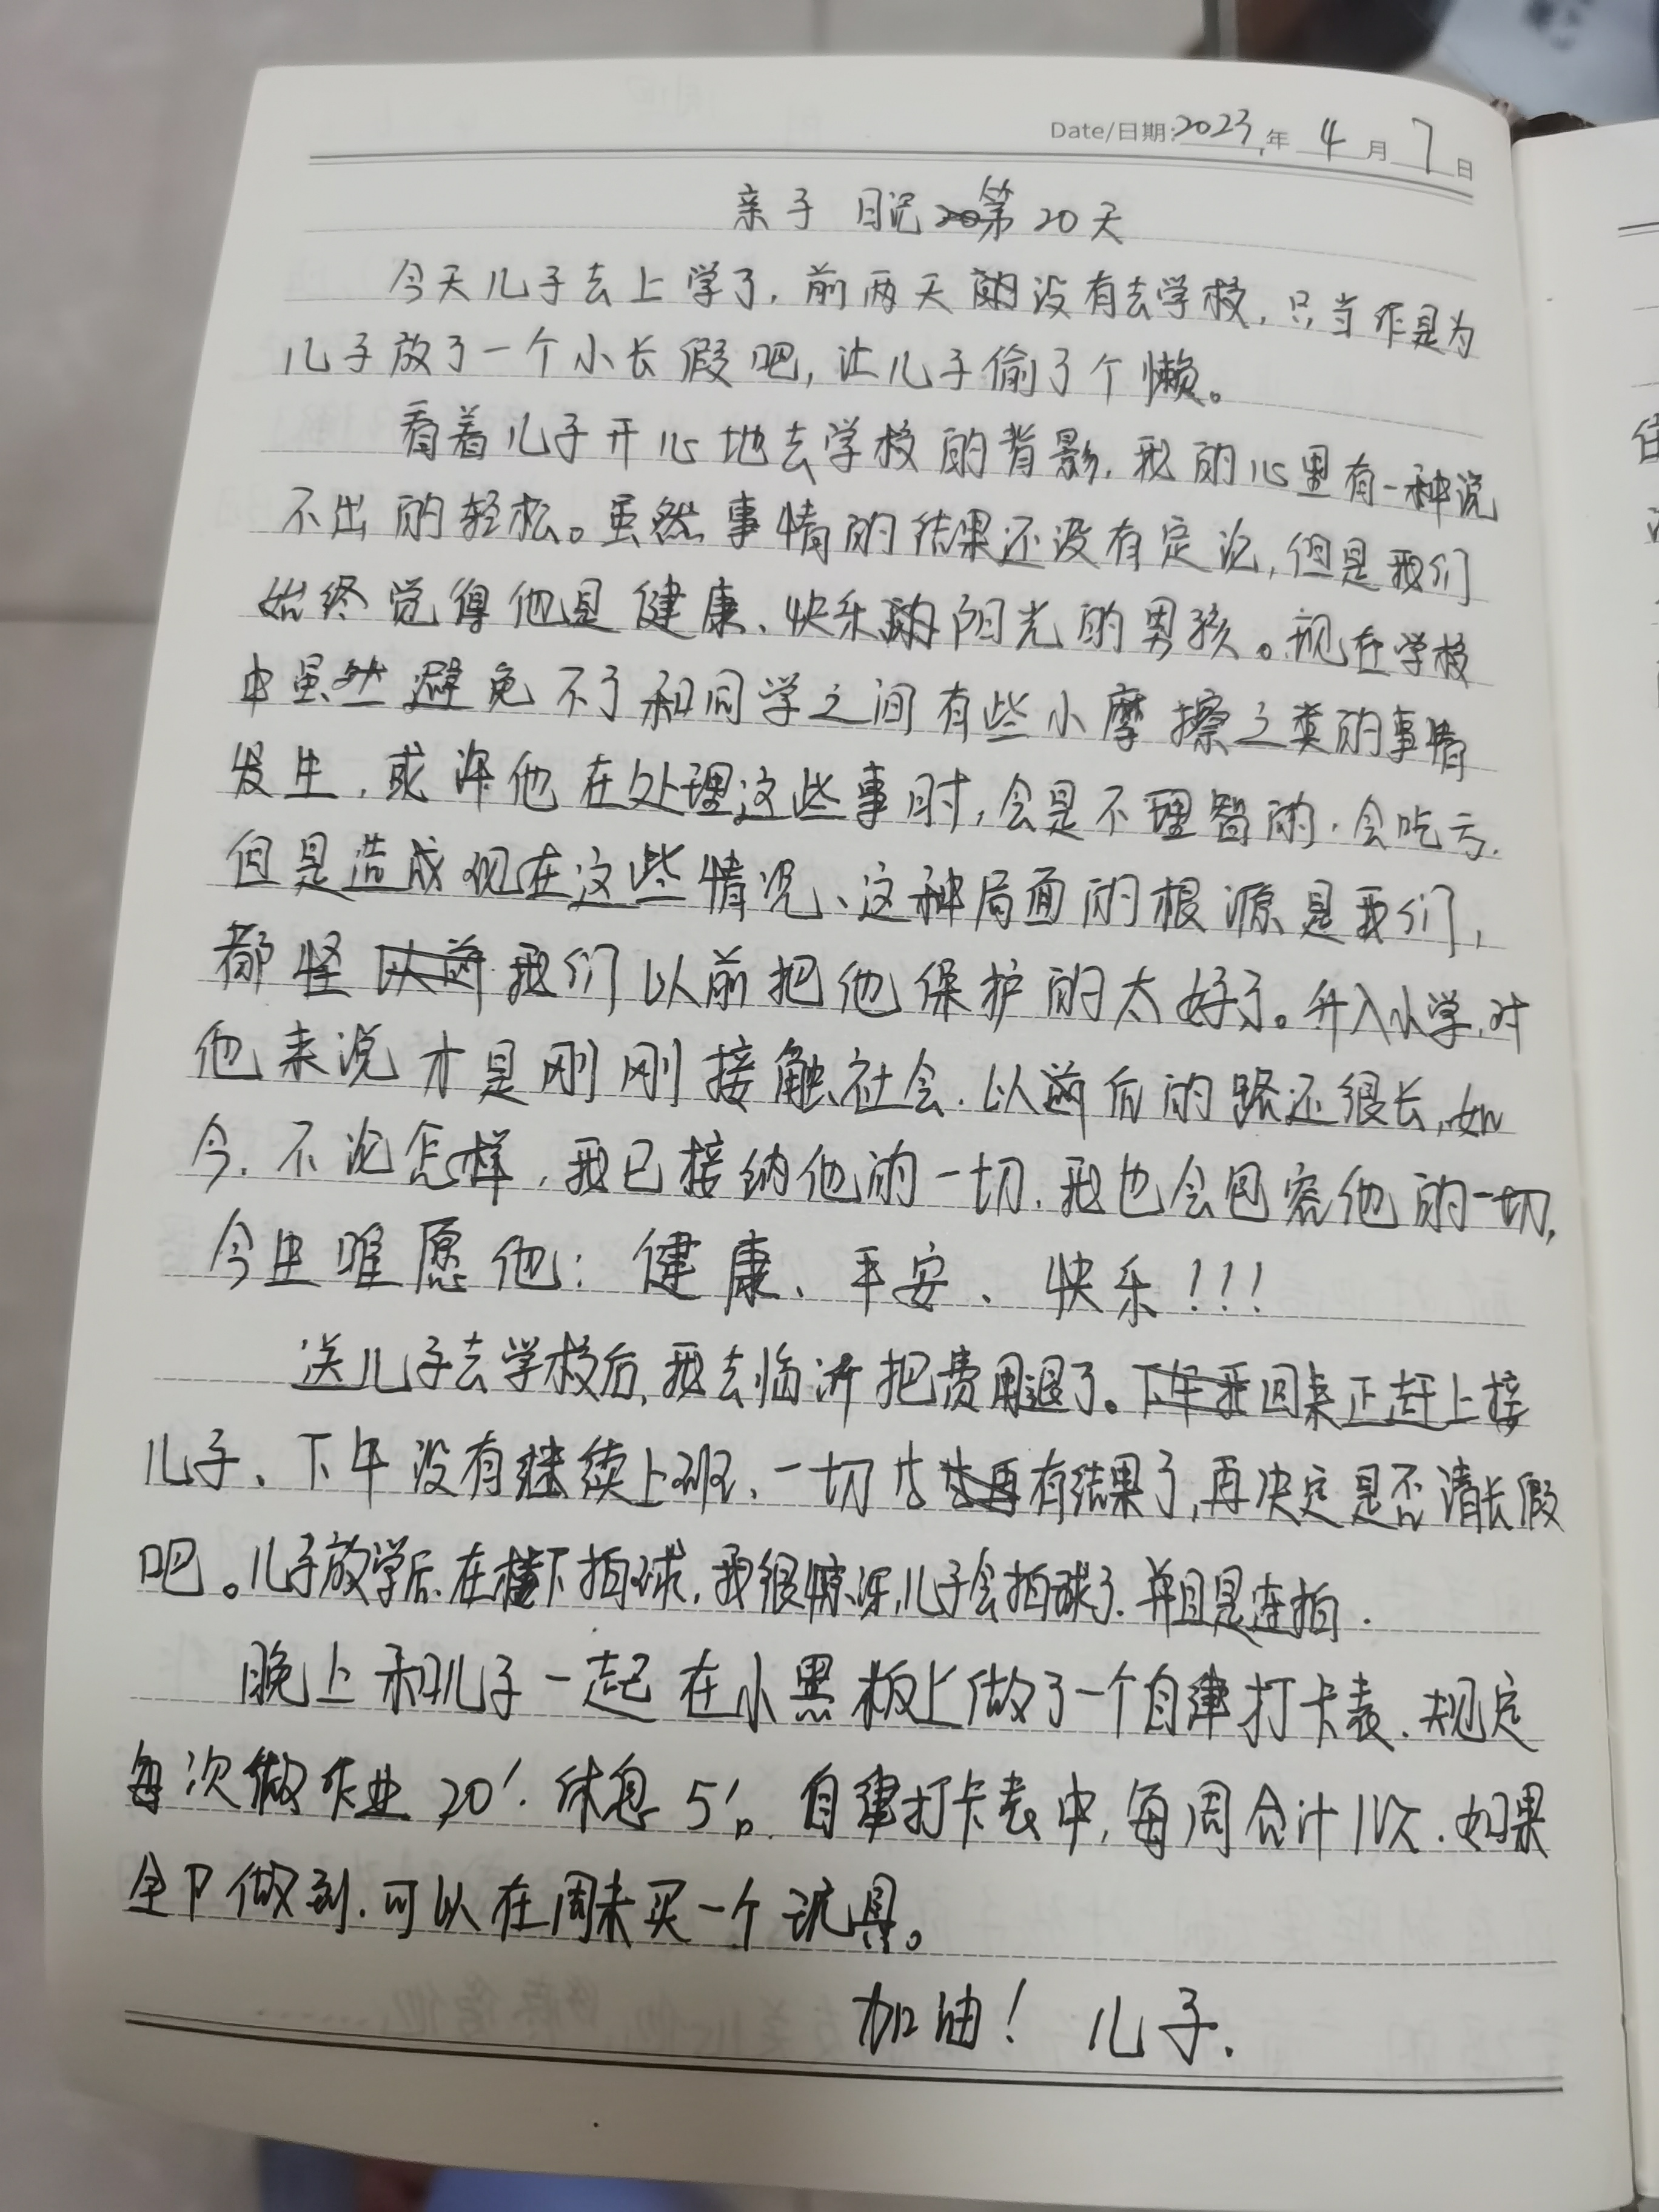 Date/日期:2023年4月7日
亲子日记第20天
今天儿子去上学了,前两天的没有去学校,只当作是为
儿子放了一个小长假吧,让儿子偷了个懒。
看着儿子开心地去学校的背影,我的心里有一种说
不出的轻松。虽然事情的结果还没有定论,但是我们
始终觉得他是健康、快乐的阳光的男孩。现在学校
中虽然避免不了和同学之间有些小摩擦之类的事情
发生,或许他在处理这些事时,会是不理智的,会吃亏.
但是造成现在这些情况、这种局面的根源是我们,
都怪我们以前把他保护的太好了。升入小学,对
他来说才是刚刚接触社会.以后的路还很长,如
今.不论怎样,我已接纳他的一切.我也会包容他的一切,
今生唯愿他:健康、平安、快乐!!!
送儿子去学校后,我去临沂把费用退了。回来正赶上接
儿子、下午没有继续上班、一切等有结果了,再决定是否请长假
吧。儿子放学后.在楼下拍球,我很惊讶,儿子会拍球了.并且是连拍.
晚上和儿子一起在小黑板上做了一个自律打卡表.规定
每次做作业20′.休息5′。自律打卡表中,每周合计1次.如果
全卩做到.可以在周末买一个玩具。
加油!儿子.